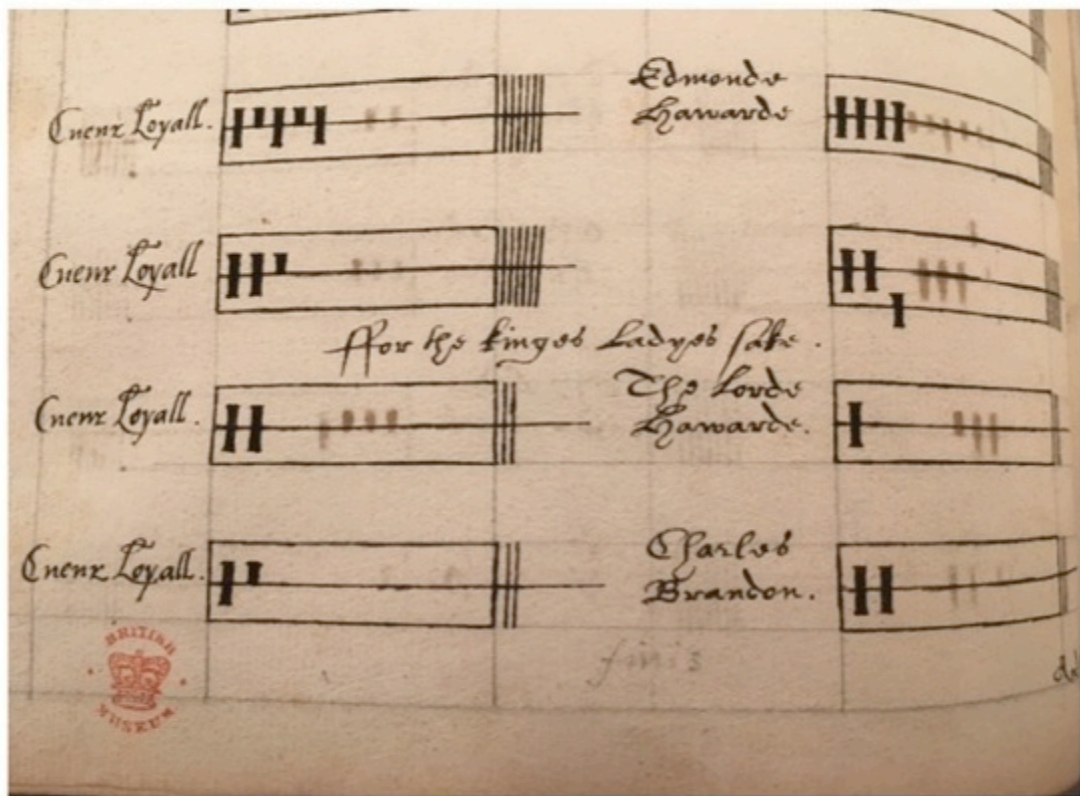 Cuenr Loyall.
Edmonde
Hawarde
Cuenr Loyall
ffor the kinges Ladyes sake.
Cuenr Loyall.
The Lorde
Hawarde.
Cuenr Loyall.
Charles
Brandon.
finis
BRITISH
MUSEUM